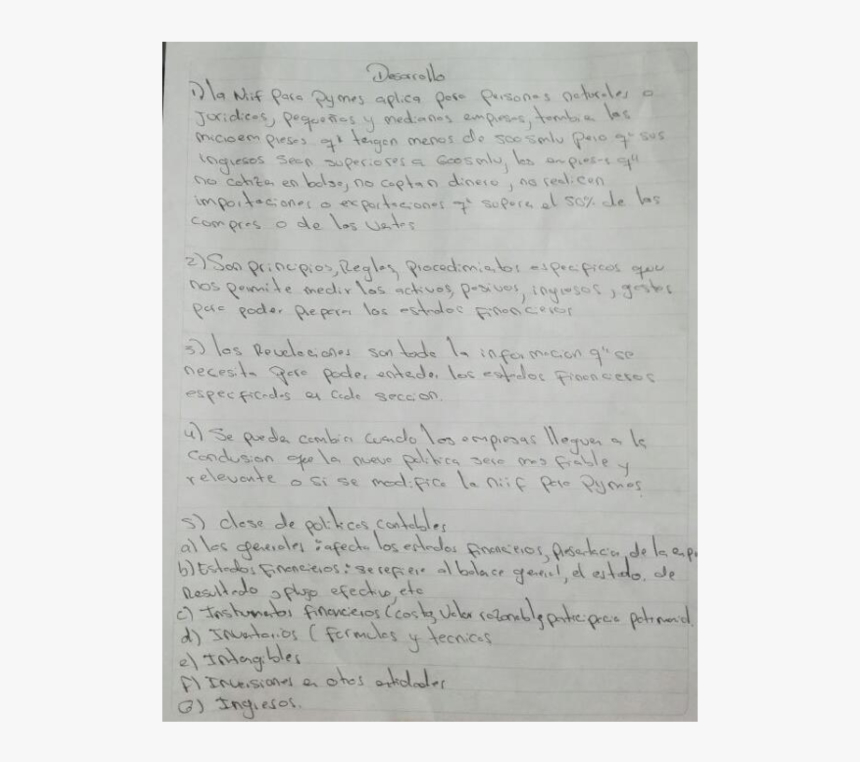 Desarrollo
1) la Niif para Pymes aplica para personas naturales o
Juridicas, pequeñas y medianas empresas, tambie las
microempresas q' tengan menos de 500smlv pero q' sus
ingresos sean superiores a 600smlv, las empresas q'
no cotiza en bolsa, no captan dinero, no realicen
importaciones o exportaciones q' supera el 50% de las
compras o de las ventas
2) Son principios, Reglas, procedimientos especificos que
nos permite medir los activos, pasivos, ingresos, gastos
para poder preparar los estados financieros
3) las Revelaciones son toda la informacion q' se
necesita para poder entender los estados financieros
especificados en cada seccion.
4) Se puede cambiar cuando las empresas lleguen a la
Conclusion que la nueva politica sera mas fiable y
relevante o si se modifica la niif para Pymes.
5) clase de politicas contables
a) las generales: afecta los estados financieros, presentacion de la emp
b) Estados financieros: se refiere al balance general, el estado de
Resultado, flujo efectivo, etc
c) Instrumentos financieros (costo, Valor razonable, participacion patrimonial
d) Inventarios (formulas y tecnicas
e) Intangibles
f) Inversiones en otras entidades
G) Ingresos.